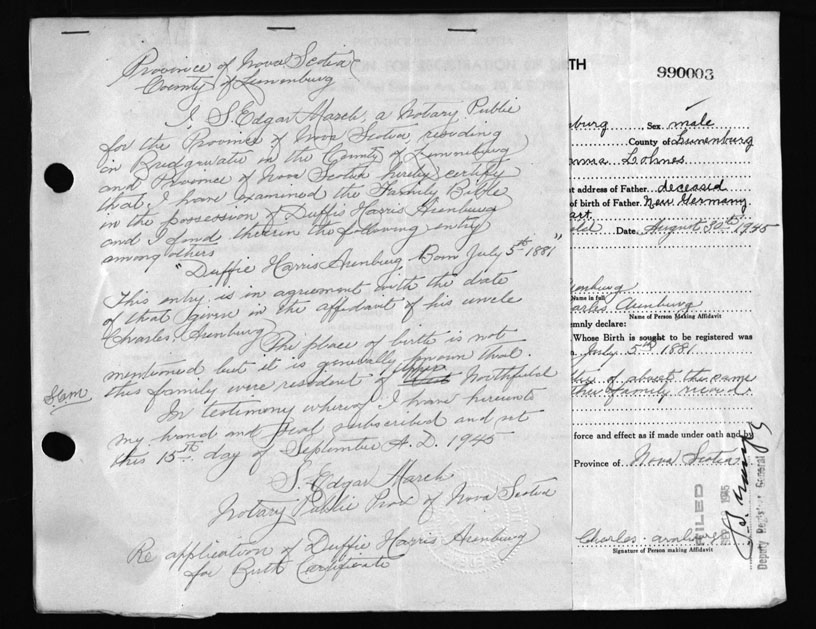 Province of Nova Scotia
County of Lunenburg
I S. Edgar March, a Notary Public
for the Province of Nova Scotia residing
in Bridgwater in the County of Lunenburg
and Province of Nova Scotia hereby certify
that I have examined the Family Bible
in the possession of Duffie Harris Arenburg
and I found therein the following entry
among others
"Duffie Harris Arenburg Born July 5th 1881"
This entry is in agreement with the date
of that given in the affidavit of his uncle
Charles Arenburg
The place of birth is not
mentioned but it is generally known that
this family were resident of Northfield
SEM
In testimony whereof I have hereunto
my hand and seal subscribed and set
this 15th day of September A.D. 1945
S. Edgar March
Notary Public Prov of Nova Scotia
Re application of Duffie Harris Arenburg
for Birth Certificate
TH
990003
burg Sex male
County of Lunenburg
Lohnes
t address of Father deceased
of birth of Father New Germany
Date August 30th 1945
enburg
Name in full
arles Arenburg
Name of Person Making Affidavit
emnly declare:
Whose Birth is sought to be registered was
July 5th 1881
of about the same
this family moved.
force and effect as if made under oath and
Province of Nova Scotia
FILED
1945
Deputy Registrar General
Charles Arnburg
Signature of Person making Affidavit